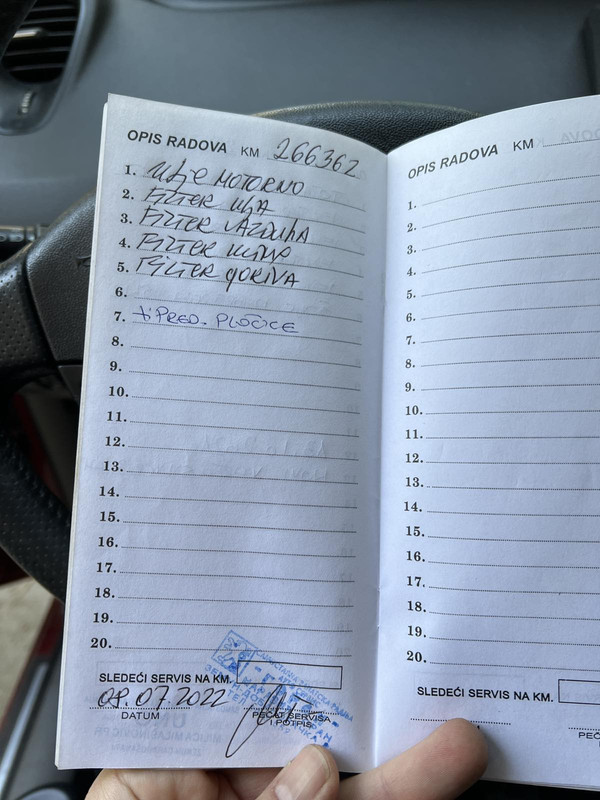 OPIS RADOVA KM 266362
1. ULJE MOTORNO
2. FILTER ULJA
3. FILTER VAZDUHA
4. FILTER KLIME
5. FILTER GORIVA
6.
7. + PRED. PLOČICE
8.
9.
10.
11.
12.
13.
14.
15.
16.
17.
18.
19.
20.
SLEDEĆI SERVIS NA KM.
08.07.2022
DATUM
PEČAT SERVISA
I POTPIS
OPIS RADOVA KM
1.
2.
3.
4.
5.
6.
7.
8.
9.
10.
11.
12.
13.
14.
15.
16.
17.
18.
19.
20.
SLEDEĆI SERVIS NA KM.